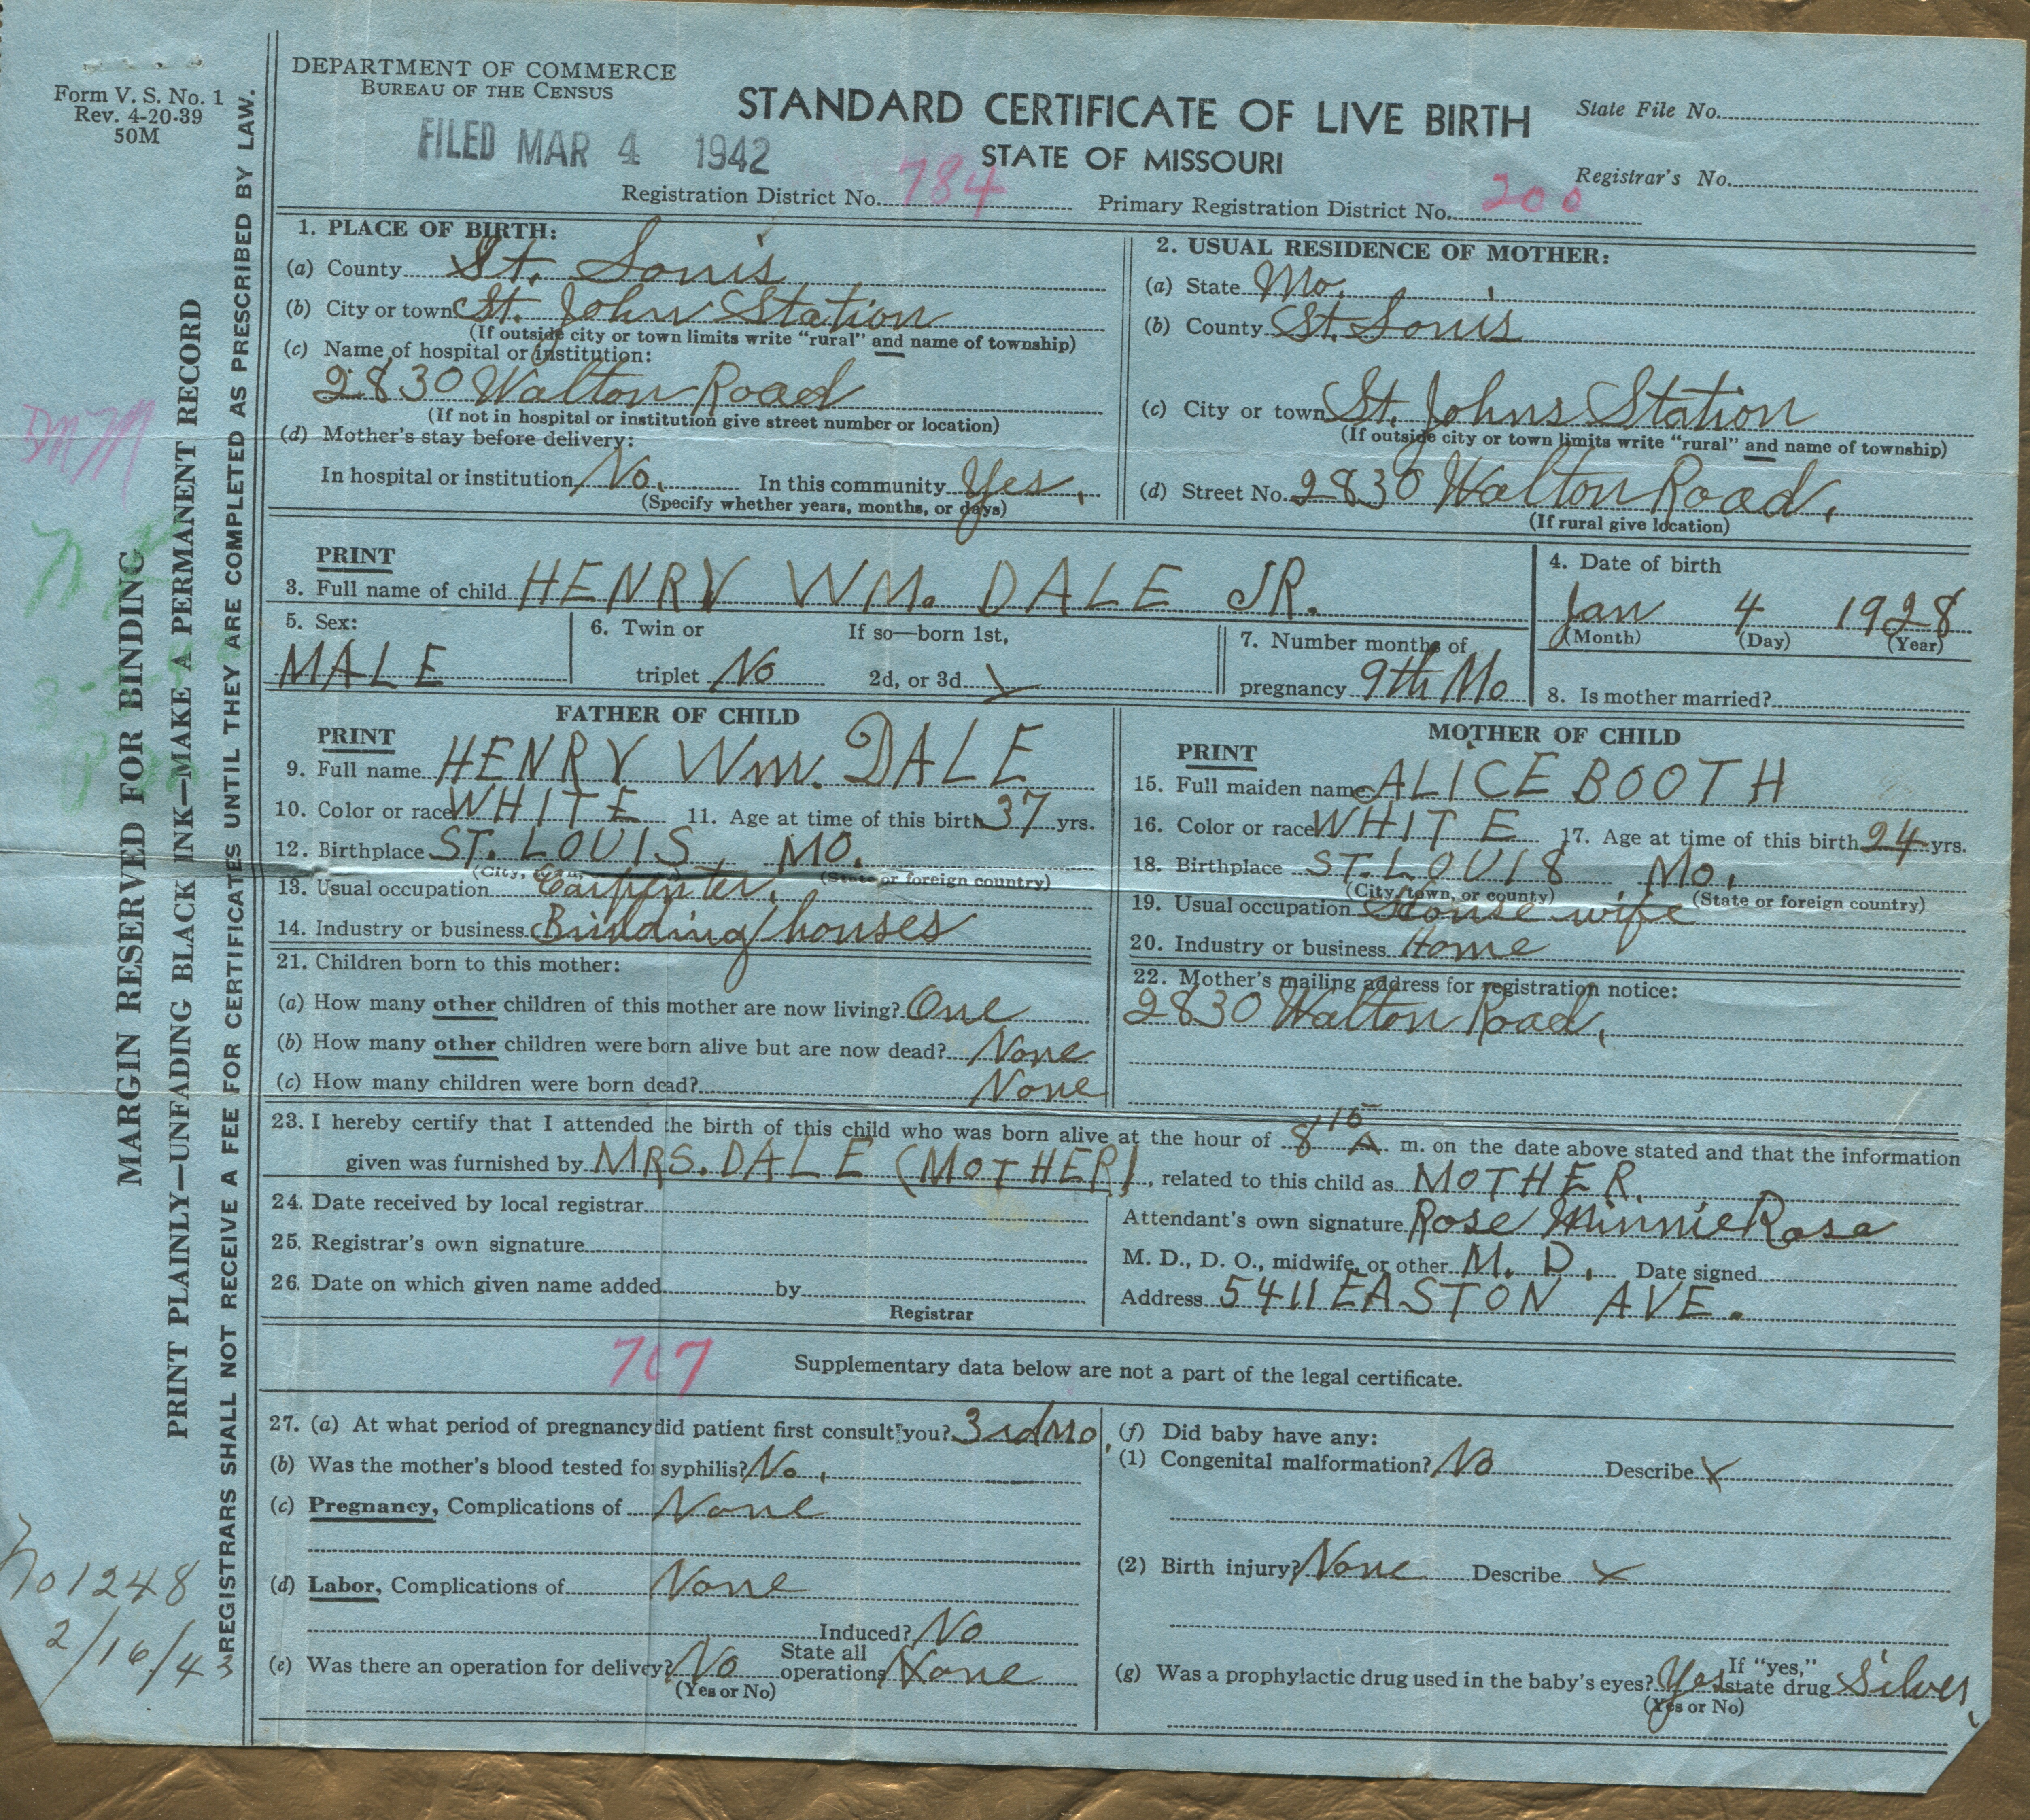 Form V. S. No. 1
Rev. 4-20-39
50M
DEPARTMENT OF COMMERCE
BUREAU OF THE CENSUS
FILED MAR 4 1942
STANDARD CERTIFICATE OF LIVE BIRTH
STATE OF MISSOURI
State File No.
Registrar's No.
Registration District No. 784 Primary Registration District No. 200
MARGIN RESERVED FOR BINDING
PRINT PLAINLY—UNFADING BLACK INK—MAKE A PERMANENT RECORD
REGISTRARS SHALL NOT RECEIVE A FEE FOR CERTIFICATES UNTIL THEY ARE COMPLETED AS PRESCRIBED BY LAW.
1. PLACE OF BIRTH:
(a) County St. Louis
(b) City or town St. John Station
(If outside city or town limits write "rural" and name of township)
(c) Name of hospital or institution:
2830 Walton Road
(If not in hospital or institution give street number or location)
(d) Mother's stay before delivery:
In hospital or institution No. In this community Yes.
(Specify whether years, months, or days)
2. USUAL RESIDENCE OF MOTHER:
(a) State Mo.
(b) County St. Louis
(c) City or town St. Johns Station
(If outside city or town limits write "rural" and name of township)
(d) Street No. 2830 Walton Road,
(If rural give location)
PRINT
3. Full name of child HENRY WM. DALE JR.
4. Date of birth
Jan 4 1928
(Month) (Day) (Year)
5. Sex:
MALE
6. Twin or If so—born 1st,
triplet No 2d, or 3d
7. Number months of
pregnancy 9th Mo
8. Is mother married?
FATHER OF CHILD
PRINT
9. Full name HENRY Wm. DALE
10. Color or race WHITE 11. Age at time of this birth 37 yrs.
12. Birthplace ST. LOUIS, MO.
(City, town, (State or foreign country)
13. Usual occupation Carpenter,
14. Industry or business Building houses
MOTHER OF CHILD
PRINT
15. Full maiden name ALICE BOOTH
16. Color or race WHITE 17. Age at time of this birth 24 yrs.
18. Birthplace ST. LOUIS, Mo.
(City, town, or county) (State or foreign country)
19. Usual occupation House wife
20. Industry or business Home
21. Children born to this mother:
(a) How many other children of this mother are now living? One
(b) How many other children were born alive but are now dead? None
(c) How many children were born dead? None
22. Mother's mailing address for registration notice:
2830 Walton Road,
23. I hereby certify that I attended the birth of this child who was born alive at the hour of 8 15 A m. on the date above stated and that the information
given was furnished by MRS. DALE (MOTHER), related to this child as MOTHER.
24. Date received by local registrar
25. Registrar's own signature
26. Date on which given name added by
Registrar
Attendant's own signature Rose Minnie Rosa
M. D., D. O., midwife, or other M. D. Date signed
Address 5411 EASTON AVE.
707
Supplementary data below are not a part of the legal certificate.
27. (a) At what period of pregnancy did patient first consult you? 3rd Mo.
(b) Was the mother's blood tested for syphilis? No.
(c) Pregnancy, Complications of None
(d) Labor, Complications of None
Induced? No
(e) Was there an operation for delivery? No State all operations None
(Yes or No)
(f) Did baby have any:
(1) Congenital malformation? No Describe
(2) Birth injury? None Describe
(g) Was a prophylactic drug used in the baby's eyes? Yes If "yes," state drug Silver
(Yes or No)
No 1248
2/16/43